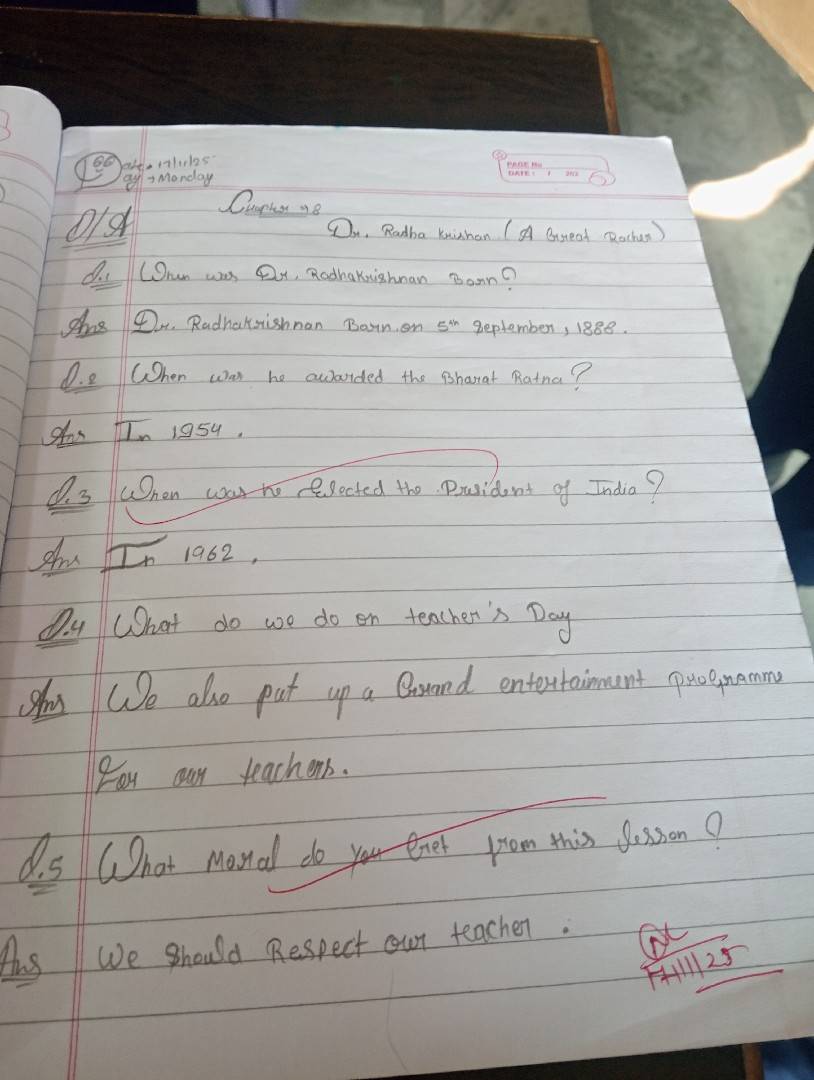 Date → 17/11/25
Day → Monday
PAGE No
DATE: / / 202
Chapter → 8
Q/A
Dr. Radha Krishan (A Great Teacher)
Q.1 When was Dr. Radhakrishnan Born?
Ans Dr. Radhakrishnan Born on 5th September, 1888.
Q.2 When was he awarded the Bharat Ratna?
Ans In 1954.
Q.3 When was he Elected the President of India?
Ans In 1962.
Q.4 What do we do on teacher's Day
Ans We also put up a Grand entertainment programme
For our teachers.
Q.5 What Moral do you Get from this lesson?
Ans We Should Respect our teacher.
17/11/25